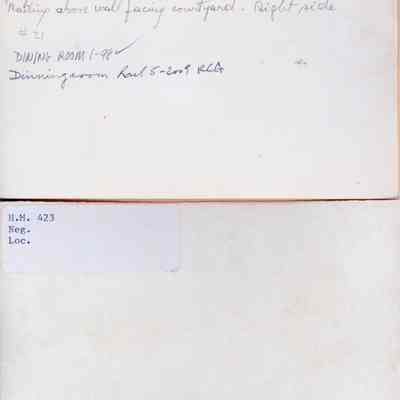 above wall facing courtyard. Right side
#21
DINING ROOM 1-98 ✓
Dinningroom Rail 5-2009 RCA
H.M. 423
Neg.
Loc.